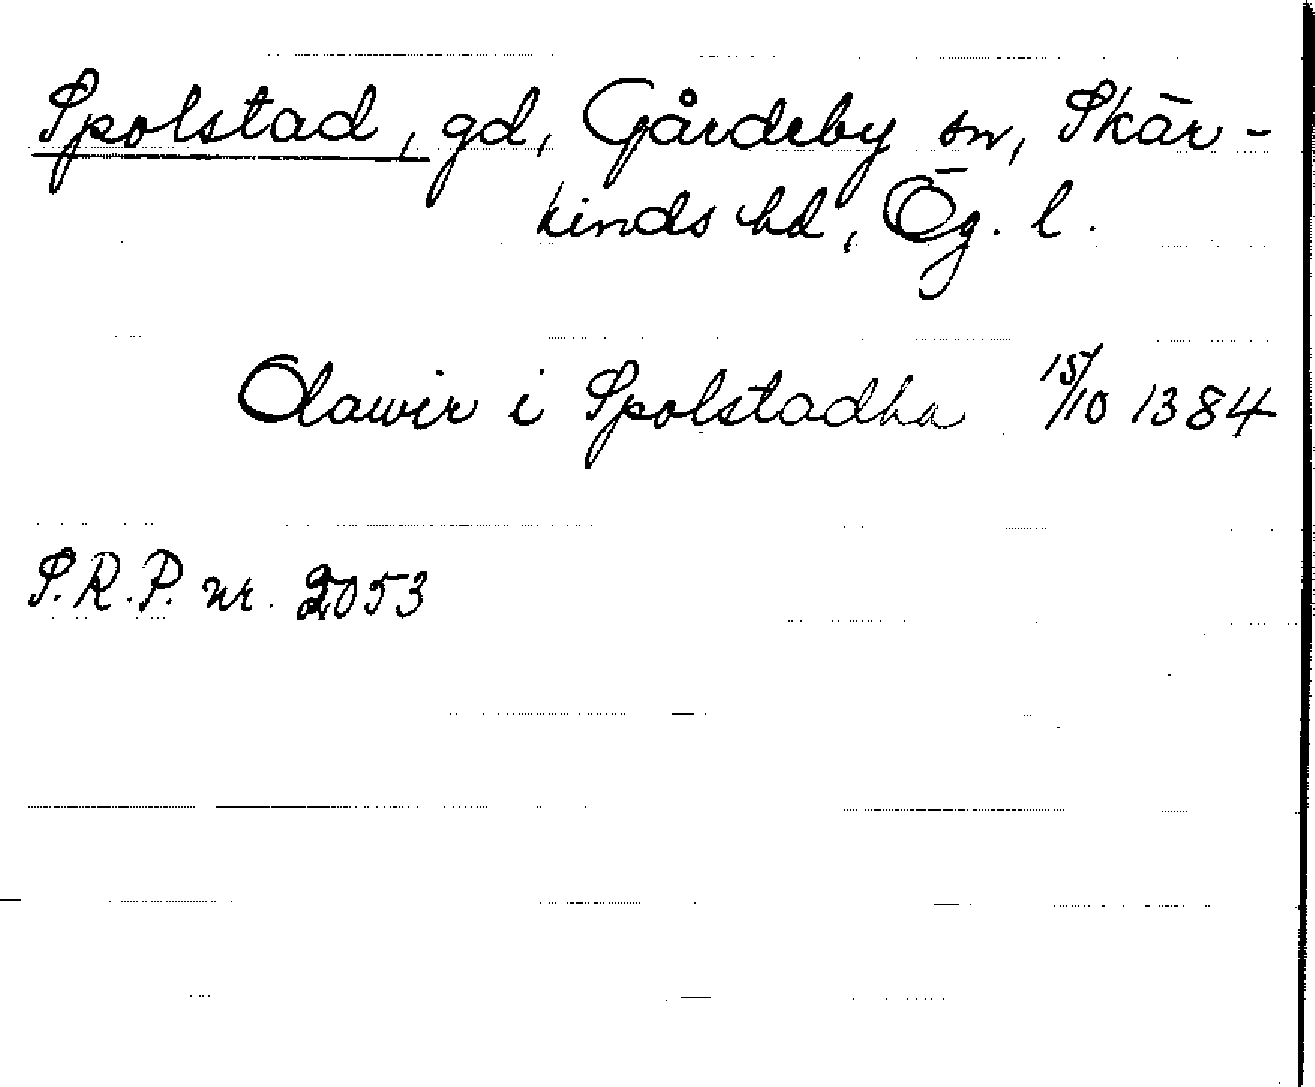 Spolstad, gd, Gårdeby sn, Skär-
kinds hd, Ög. l.
Olawir i Spolstadha 15/10 1384
S.R.P. nr. 2053